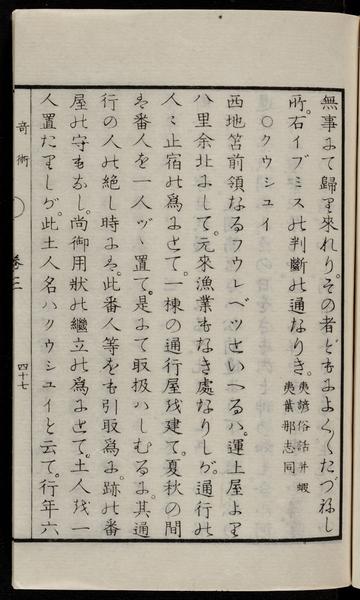 無事にて歸り來れり。その者どもによく〱たづねし
所。石イブミスの判斷の通なりき。夷諺俗話并蝦
夷葉那志同
○クウシユイ
西地筥前領なるフウレベツといへるハ。運上屋より
八里余北にして。元來漁業もなき處なりしが。通行の
人々止宿の爲にとて。一棟の通行屋を建て。夏秋の間
は番人を一人ヅヽ置て。是にて取扱ハしむるに。其通
行の人の絶し時には。此番人等をも引取爲に。跡の番
屋の守もなし。尚御用狀の繼立の爲にとて。土人を一
人置たりしが。此土人名ハクウシユイと云て。行年六
奇術
卷三
四十七